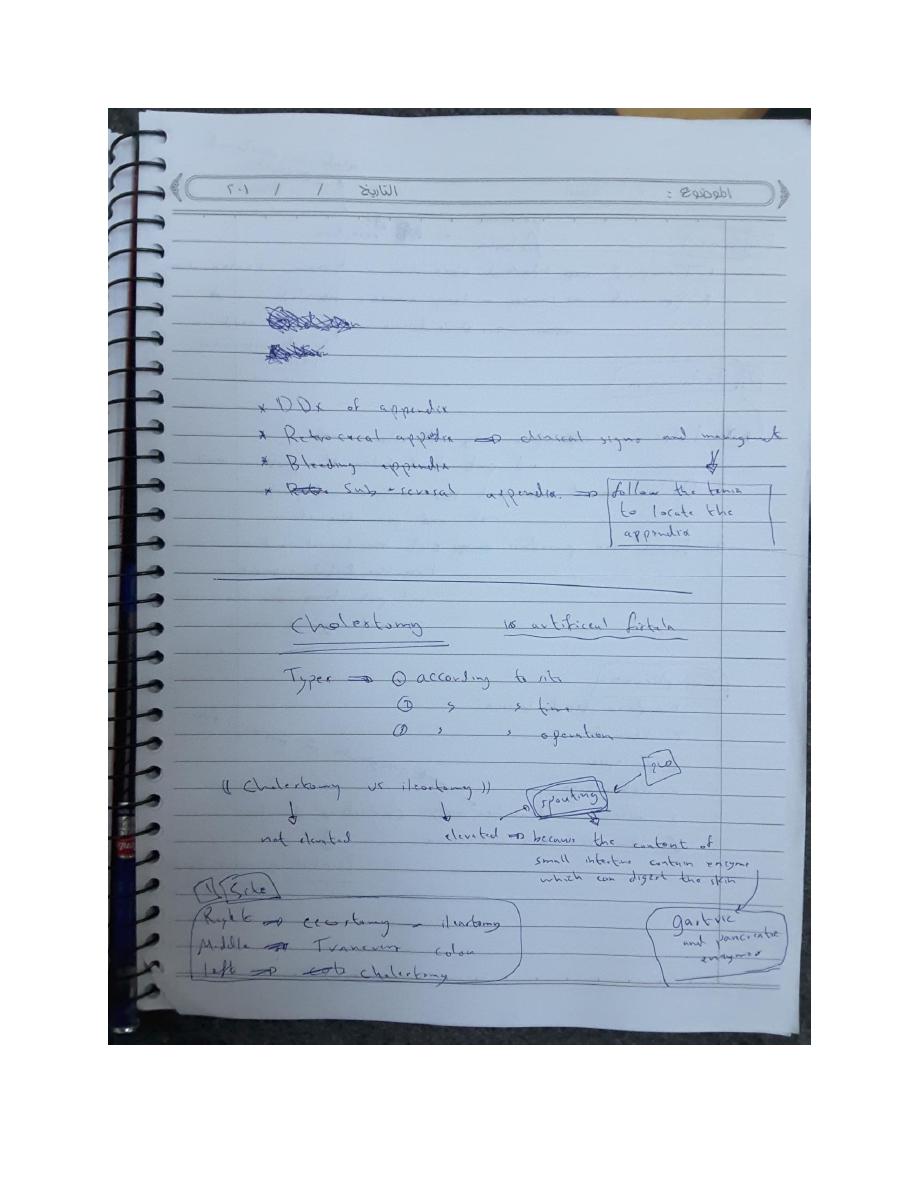 الموضوع : التاريخ / / ٢٠١
* DDx of appendix
* Retrocecal appendix ⇒ clinical signs and managment
* Bleeding appendix
* Sub-serosal appendix ⇒ follow the tenia
to locate the
appendix
Cholestomy is artificeal fistula
Types ⇒ ① according to site
② " " time
③ " " operation
(( Cholestomy vs ileostomy ))
spouting
not elevated elevated ⇒ because the content of
small intestine contain enzyme
which can digest the skin
1) Site
Right ⇒ cecostomy - ileostomy
Middle ⇒ Transvers colon
Left ⇒ Cholestomy
gastric
and pancreatic
enzymes